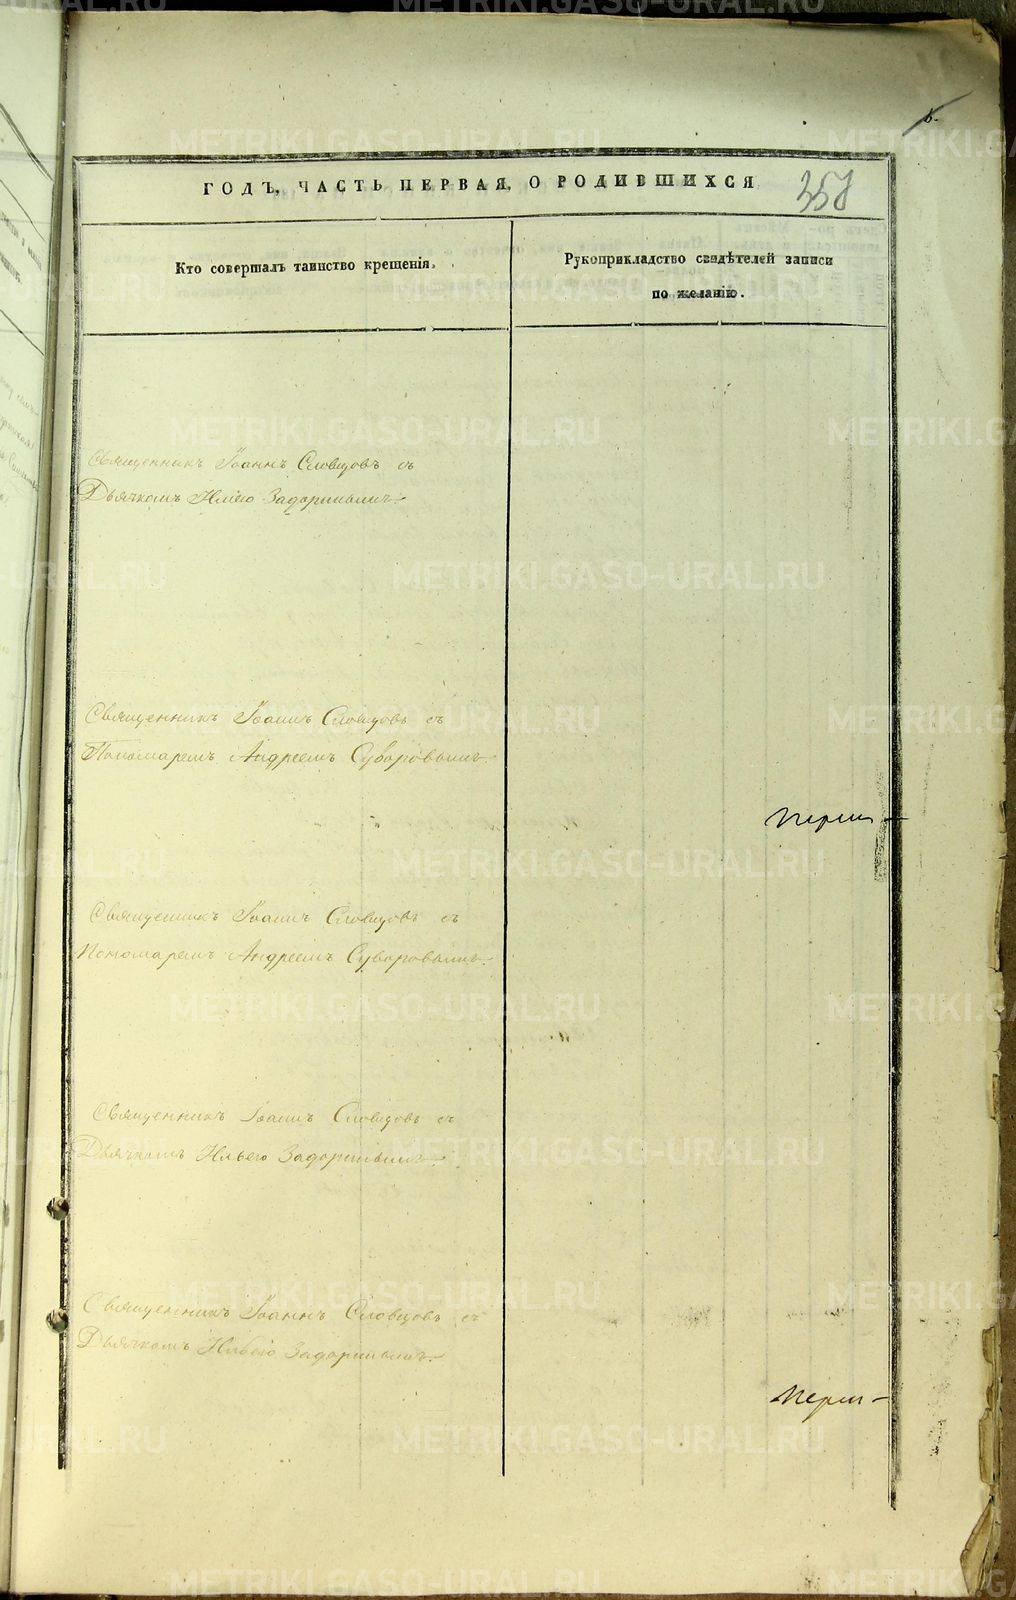 5.
ГОДЪ, ЧАСТЬ ПЕРВАЯ, О РОДИВШИХСЯ
358
Кто совершалъ таинство крещенія.
Рукоприкладство свидѣтелей записи
по желанію.
Священникъ Іоаннъ Словцовъ съ
Дьячкомъ Ильею Задоринымъ
Священникъ Іоаннъ Словцовъ съ
Пономаремъ Андреемъ Суворовымъ
Священникъ Іоаннъ Словцовъ съ
Пономаремъ Андреемъ Суворовымъ.
Священникъ Іоаннъ Словцовъ съ
Дьячкомъ Ильею Задоринымъ.
Священникъ Іоаннъ Словцовъ съ
Дьячкомъ Ильею Задоринымъ.
METRIKI.GASO-URAL.RU